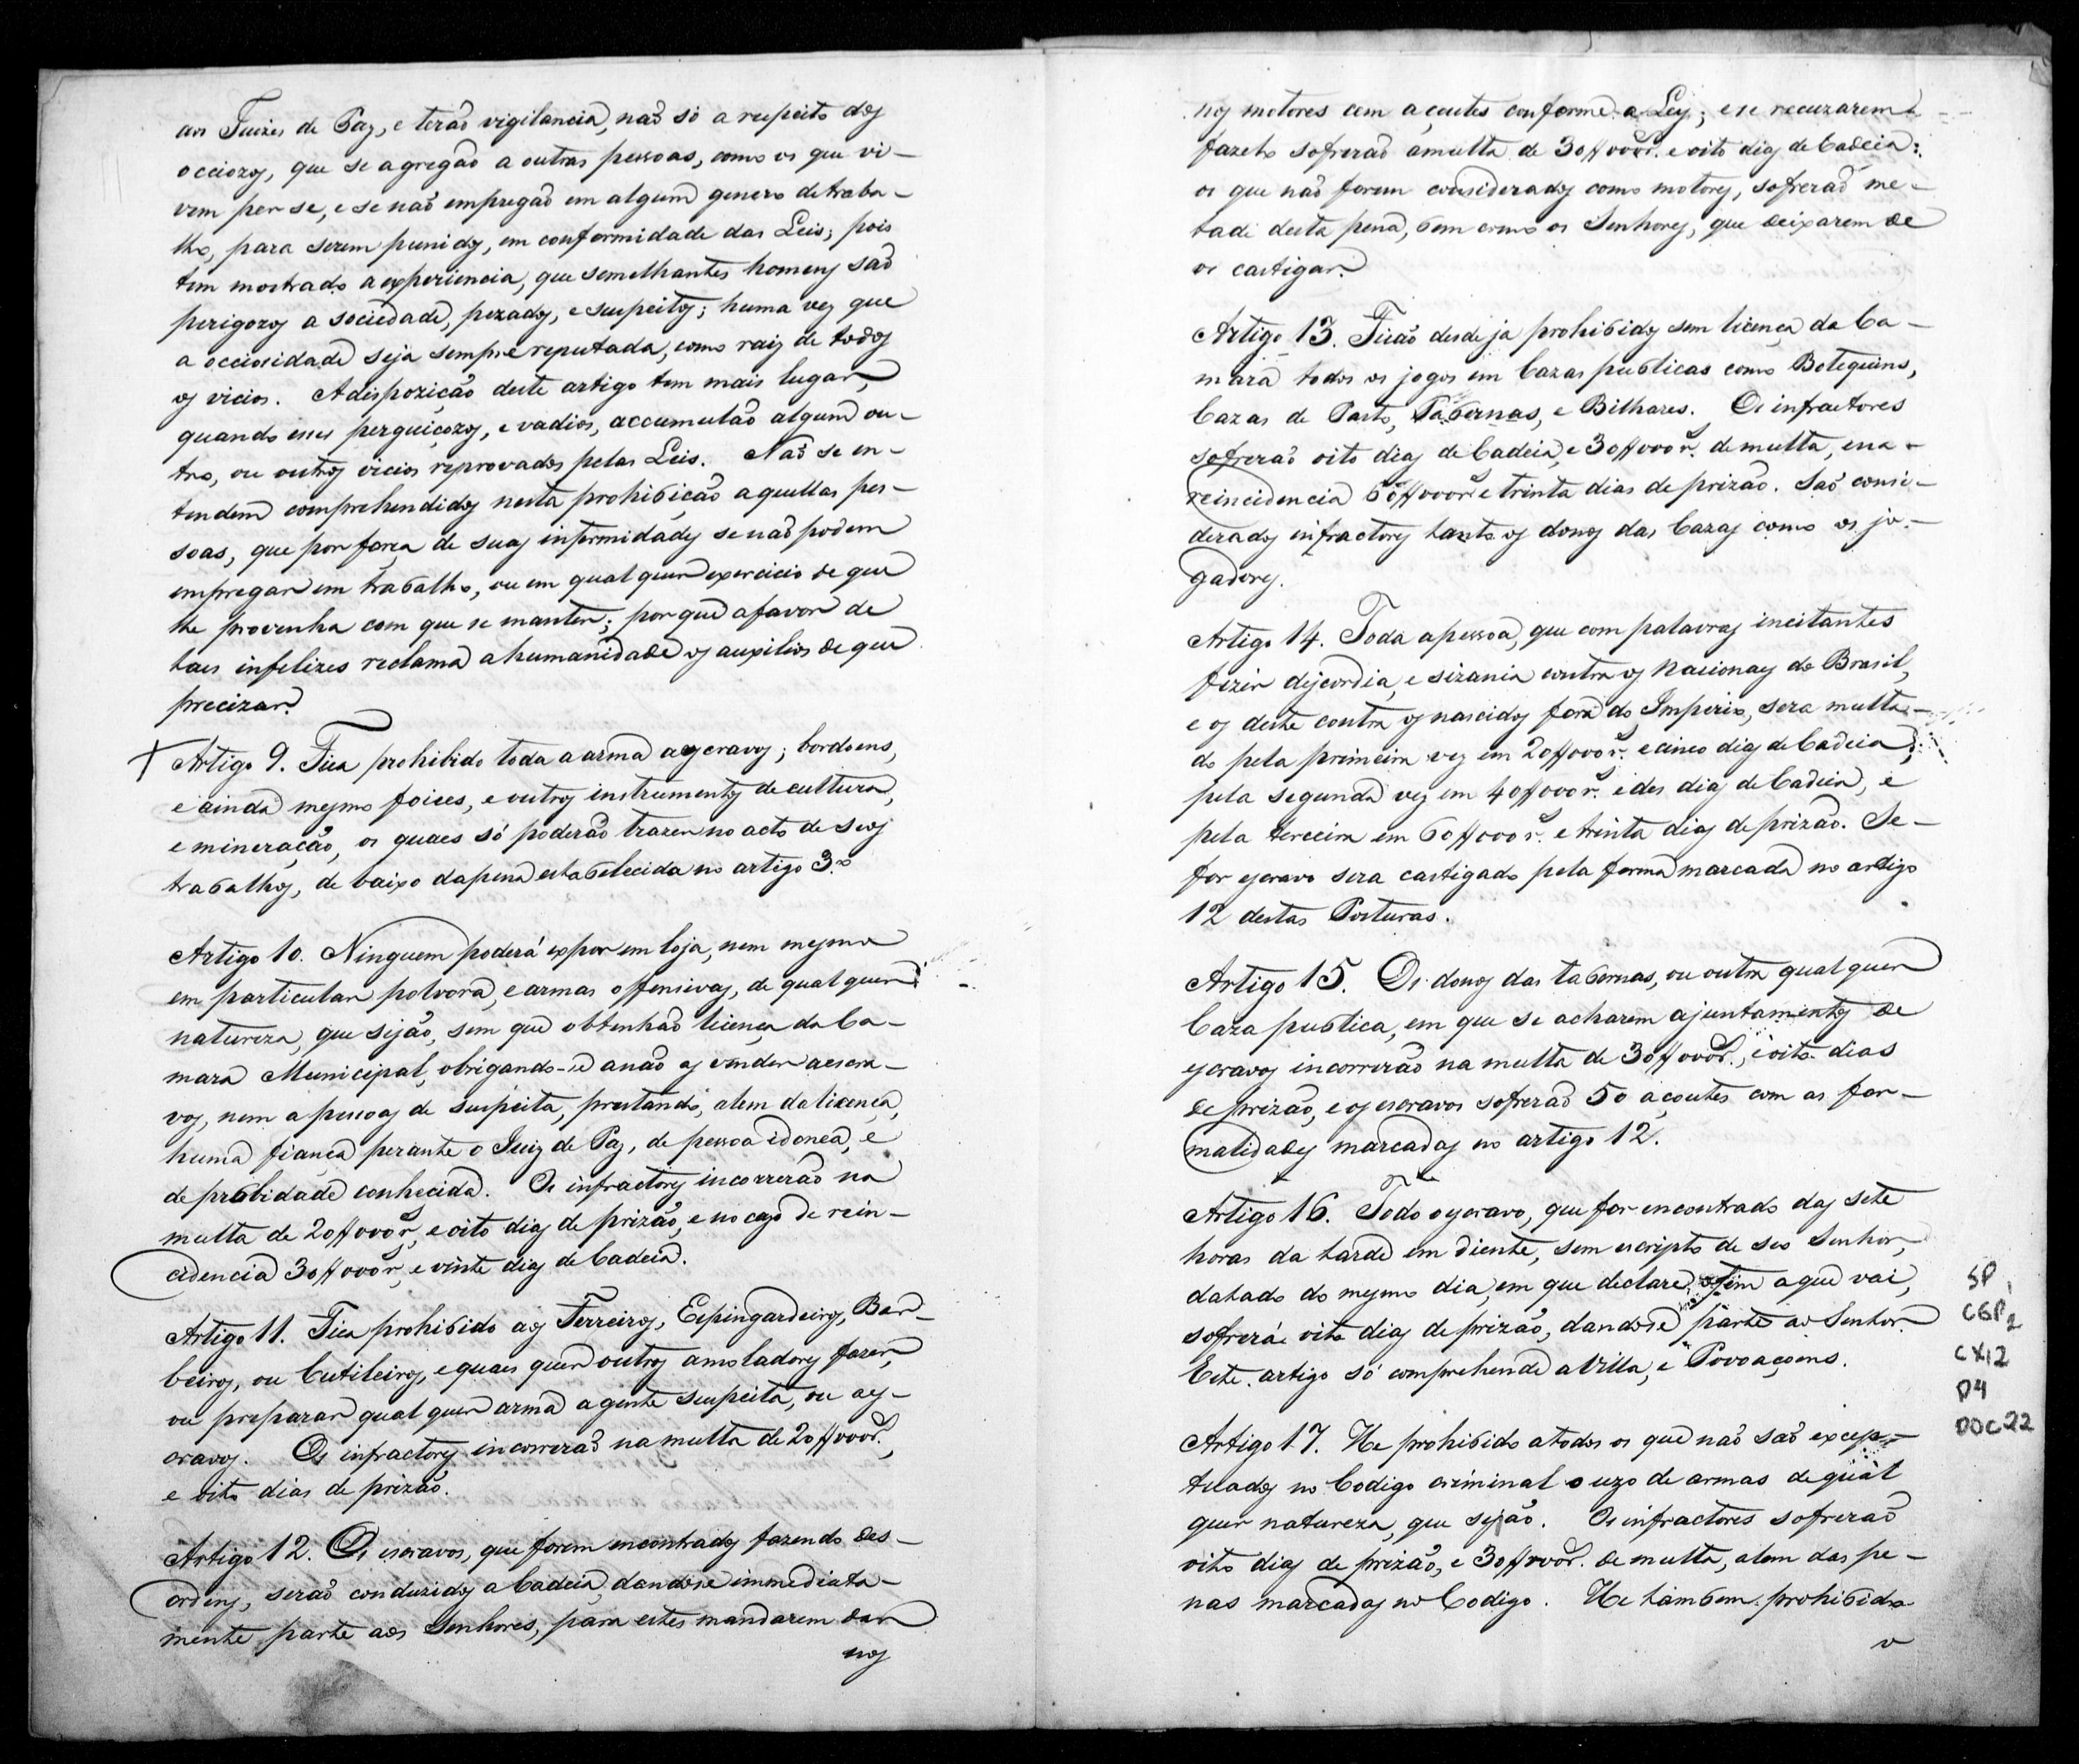 aos Juizes de Paz, e terão vigilancia, não só a respeito dos
occiozos, que se agregão a outras pessoas, como os que vi-
vem per se, e se não empregão em algum genero de traba-
lho, para serem punidos, em conformidade das Leis; pois
tem mostrado a experiencia, que semelhantes homens são
perigozos a sociedade, pezados, e suspeitos; huma vez que
a occiosidade seja sempre reputada, como raiz de todos
os vicios. A dispozição deste artigo tem mais lugar,
quando esses perguiçozos, e vadios, accumulão algum ou-
tro, ou outros vicios reprovados pelas Leis. Não se en-
tendem comprehendidos nesta prohibição aquellas pes-
soas, que por força de suas infermidades se não podem
empregar em trabalho, ou em qualquer exercicio de que
lhe provenha com que se manter; porque a favor de
taes infelizes reclama a humanidade os auxilios de que
precizar.
Artigo 9. Fica prohibido toda a arma a escravos; bordoens,
e ainda mesmo foices, e outros instrumentos de cultura,
e mineração, os quaes só poderão trazer no acto de seos
trabalhos, de baixo da pena estabelecida no artigo 3.º
Artigo 10. Ninguem poderá expor em loja, nem mesmo
em particular polvora, e armas offensivas, de qualquer
natureza, que sejão, sem que obtenhão licença da Ca-
mara Municipal, obrigando-se a não as vender a escra-
vos, nem a pessoas de suspeita, prestando, alem da licença,
huma fiança perante o Juiz de Paz, de pessoa idonea, e
de probidade conhecida. Os infractores incorrerão na
multa de 20$000 rs, e oito dias de prizão, e no cazo de rein-
cidencia 30$000 rs, e vinte dias de Cadeia.
Artigo 11. Fica prohibido aos Ferreiros, Espingardeiros, Bar-
beiros, ou Cutileiros, e quaes quer outros amoladores fazer,
ou preparar qualquer arma a gente suspeita, ou a es-
cravos. Os infractores incorrerão na multa de 20$000 rs.,
e oito dias de prizão.
Artigo 12. Os escravos, que forem encontrados fazendo des-
ordens, serão conduzidos a Cadeia, dandose immediata-
mente parte aos Senhores, para estes mandarem dar
nos
nos motores cem açoutes conforme a Ley; e se recuzarem
fazelo sofrerão a multa de 30$000 rs. e oito dias de Cadeia:
os que não forem considerados como motores, sofrerão me-
tade desta pena, bem como os Senhores, que deixarem de
os castigar.
Artigo 13. Ficão desde ja prohibidos sem licença da Ca-
mara todos os jogos em Cazas publicas como Botequins,
Cazas de Pasto, Tabernas, e Bilhares. Os infractores
sofrerão oito dias de Cadeia, e 30$000 rs. de multa, e na
reincidencia 60$000 rs e trinta dias de prizão. São consi-
derados infractores tanto os donos das Cazas como os jo-
gadores.
Artigo 14. Toda a pessoa, que com palavras incitantes
fizer discordia, e sizania contra os Nacionaes do Brasil,
e os deste contra os nascidos fora do Imperio, sera multa-
do pela primeira vez em 20$000 rs. e cinco dias de Cadeia;
pela segunda vez em 40$000 rs. e des dias de Cadeia, e
pela terceira em 60$000 rs. e trinta dias de prizão. Se
for escravo sera castigado pela forma marcada no artigo
12 destas Posturas.
Artigo 15. Os donos das tabernas, ou outra qualquer
Caza publica, em que se acharem ajuntamentos de
escravos incorrerão na multa de 30$000 rs., e oito dias
de prizão, e os escravos sofrerão 50 açoutes com as for-
malidades marcadas no artigo 12.
Artigo 16. Todo o escravo, que for encontrado das sete
horas da tarde em diente, sem escripto de seo Senhor,
datado do mesmo dia, em que declare o fim a que vai,
sofrerá oito dias de prizão, dandose parte ao Senhor.
Este artigo só comprehende a Villa, e Povoaçoens.
Artigo 17. He prohibido a todos os que não são excep-
tuados no Codigo criminal o uzo de armas de qual
quer natureza, que sejão. Os infractores sofrerão
oito dias de prizão, e 30$000 rs. de multa, alem das pe-
nas marcadas no Codigo. He tambem prohibido
o
SP1
CGP2
CX12
P4
DOC22